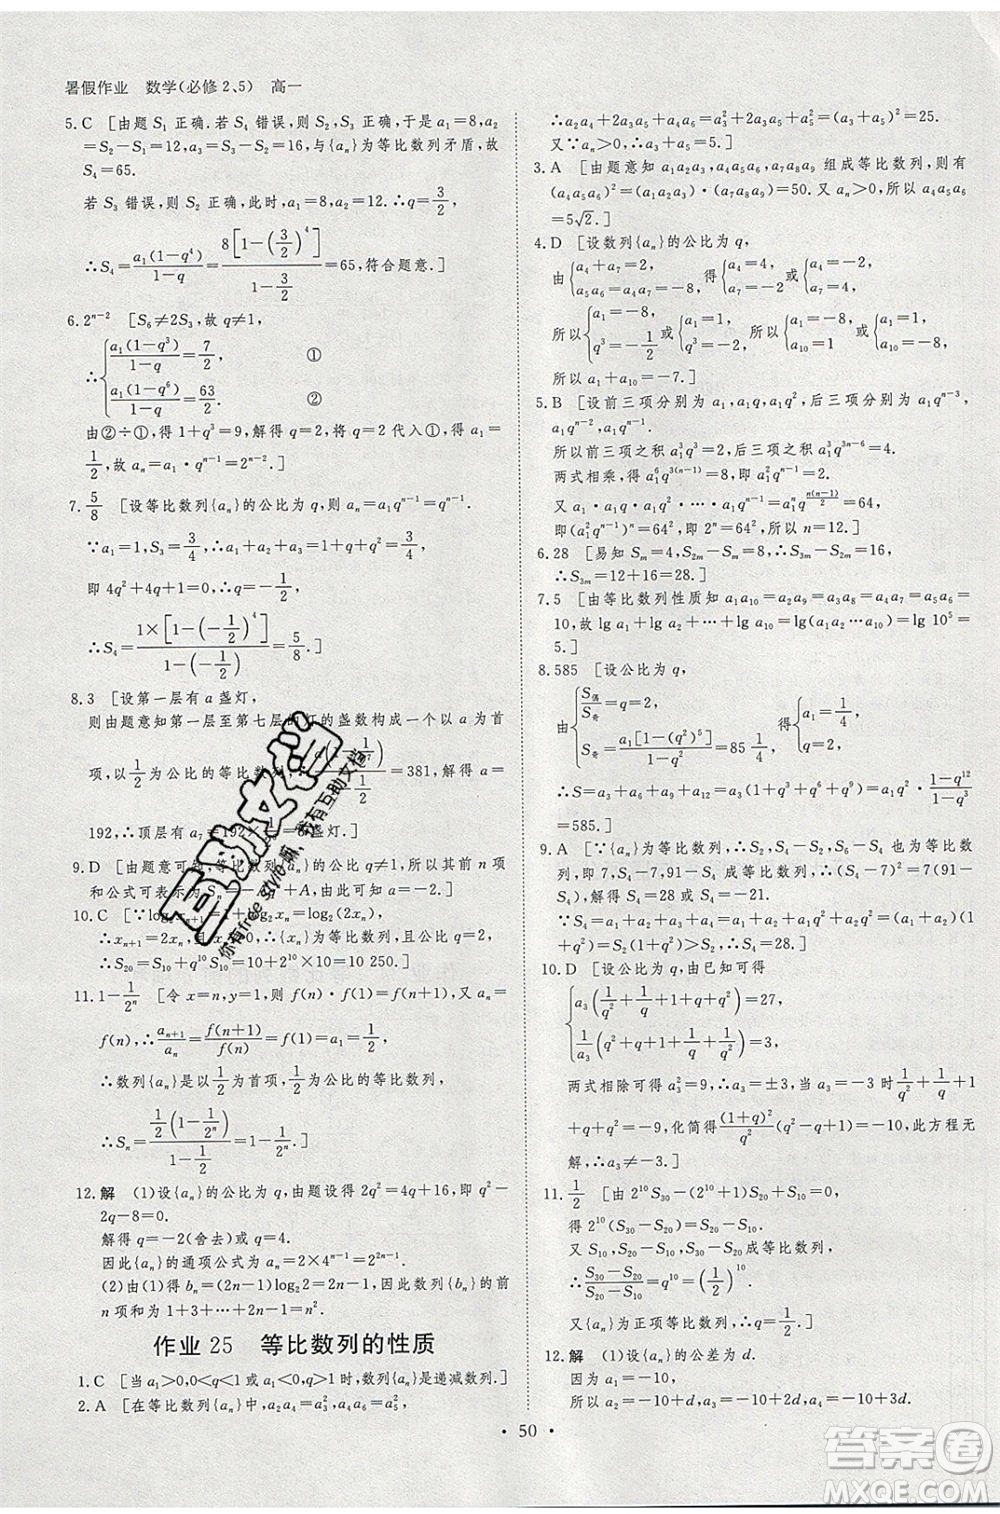 暑假作业 数学(必修2、5) 高一
5.C [由题 S₁ 正确.若 S₄ 错误,则 S₂、S₃ 正确,于是 a₁=8,a₂
=S₂-S₁=12,a₃=S₃-S₂=16,与{aₙ}为等比数列矛盾,故
S₄=65.
若 S₃ 错误,则 S₂ 正确,此时,a₁=8,a₂=12.∴q=3/2,
∴S₄=a₁(1-q⁴)/(1-q)=8[1-(3/2)⁴]/(1-3/2)=65,符合题意.]
6.2ⁿ⁻² [S₆≠2S₃,故 q≠1,
∴{a₁(1-q³)/(1-q)=7/2, ①
a₁(1-q⁶)/(1-q)=63/2. ②
由②÷①,得 1+q³=9,解得 q=2,将 q=2 代入①,得 a₁=
1/2,故 aₙ=a₁·qⁿ⁻¹=1/2·2ⁿ⁻¹=2ⁿ⁻².]
7.5/8 [设等比数列{aₙ}的公比为 q,则 aₙ=a₁qⁿ⁻¹=qⁿ⁻¹.
∵a₁=1,S₃=3/4,∴a₁+a₂+a₃=1+q+q²=3/4,
即 4q²+4q+1=0,∴q=-1/2,
∴S₄=1×[1-(-1/2)⁴]/(1-(-1/2))=5/8.]
8.3 [设第一层有 a 盏灯,
则由题意知第一层至第七层的灯的盏数构成一个以 a 为首
项,以1/2为公比的等比数列,=381,解得 a=
192,∴顶层有 a₇=192×盏灯.]
9.D [由题意可知,等比数列{aₙ}的公比 q≠1,所以其前 n 项
和公式可表示为 Sₙ=+A,所以 a=-2.]
10.C [∵log₂xₙ₊₁=1+log₂xₙ=log₂(2xₙ),
∴xₙ₊₁=2xₙ,∴{xₙ}为等比数列,且公比 q=2,
∴S₂₀=S₁₀+q¹⁰S₁₀=10+2¹⁰×10=10 250.]
11.1-1/2ⁿ [令 x=n,y=1,则 f(n)·f(1)=f(n+1),又 aₙ=
f(n),∴aₙ₊₁/aₙ=f(n+1)/f(n)=f(1)=1/2,
∴数列{aₙ}是以1/2为首项,1/2为公比的等比数列,
∴Sₙ=1/2(1-1/2ⁿ)/(1-1/2)=1-1/2ⁿ.]
12.解 (1)设{aₙ}的公比为 q,由题设得 2q²=4q+16,即 q²-
2q-8=0.
解得 q=-2(舍去)或 q=4.
因此{aₙ}的通项公式为 aₙ=2×4ⁿ⁻¹=2²ⁿ⁻¹.
(2)由(1)得 bₙ=(2n-1)log₂2=2n-1,因此数列{bₙ}的前
n 项和为 1+3+…+2n-1=n².
作业 25 等比数列的性质
1.C [当 a₁>0,0<q<1 或 a₁<0,q>1 时,数列{aₙ}是递减数列.]
2.A [在等比数列{aₙ}中,∵a₂·a₄=a₃²,a₄·a₆=a₅²,
∴a₂a₄+2a₃a₅+a₄a₆=a₃²+2a₃a₅+a₅²=(a₃+a₅)²=25.
又∵aₙ>0,∴a₃+a₅=5.]
3.A [由题意知 a₁a₂a₃,a₄a₅a₆,a₇a₈a₉ 组成等比数列,则有
(a₄a₅a₆)²=(a₁a₂a₃)·(a₇a₈a₉)=50.又 aₙ>0,所以 a₄a₅a₆
=5√2.]
4.D [设数列{aₙ}的公比为 q,
由{a₄+a₇=2, a₅a₆=a₄a₇=-8, 得{a₄=4, a₇=-2 或{a₄=-2, a₇=4,
所以{a₁=-8, q³=-1/2 或{a₁=1, q³=-2, 所以{a₁=-8, a₁₀=1 或{a₁=1, a₁₀=-8,
所以 a₁+a₁₀=-7.]
5.B [设前三项分别为 a₁,a₁q,a₁q²,后三项分别为 a₁qⁿ⁻³,
a₁qⁿ⁻²,a₁qⁿ⁻¹.
所以前三项之积 a₁³q³=2,后三项之积 a₁³q³ⁿ⁻⁶=4.
两式相乘,得 a₁⁶q³⁽ⁿ⁻¹⁾=8,即 a₁²qⁿ⁻¹=2.
又 a₁·a₁q·a₁q²·…·a₁qⁿ⁻¹=64,所以 a₁ⁿ·q^(n(n-1)/2)=64,
即(a₁²qⁿ⁻¹)ⁿ=64²,即 2ⁿ=64²,所以 n=12.]
6.28 [易知 Sₘ=4,S₂ₘ-Sₘ=8,∴S₃ₘ-S₂ₘ=16,
∴S₃ₘ=12+16=28.]
7.5 [由等比数列性质知 a₁a₁₀=a₂a₉=a₃a₈=a₄a₇=a₅a₆=
10,故 lg a₁+lg a₂+…+lg a₁₀=lg(a₁a₂…a₁₀)=lg 10⁵=
5.]
8.585 [设公比为 q,
由{S偶/S奇=q=2, S奇=a₁[1-(q²)⁵]/(1-q²)=85 1/4, 得{a₁=1/4, q=2,
∴S=a₃+a₆+a₉+a₁₂=a₃(1+q³+q⁶+q⁹)=a₁q²·(1-q¹²)/(1-q³)
=585.]
9.A [∵{aₙ}为等比数列,∴S₂,S₄-S₂,S₆-S₄ 也为等比数列,
即 7,S₄-7,91-S₄ 成等比数列,∴(S₄-7)²=7(91-
S₄),解得 S₄=28 或 S₄=-21.
∵S₄=a₁+a₂+a₃+a₄=a₁+a₂+a₁q²+a₂q²=(a₁+a₂)(1
+q²)=S₂(1+q²)>S₂,∴S₄=28.]
10.D [设公比为 q,由已知可得
{a₃(1/q²+1/q+1+q+q²)=27,
1/a₃(1/q²+1/q+1+q+q²)=3,
两式相除可得 a₃²=9,∴a₃=±3,当 a₃=-3 时1/q²+1/q+1
+q+q²=-9,化简得(1+q)²/q²+(q+1)²=-9,此方程无
解,∴a₃≠-3.]
11.1/2 [由 2¹⁰S₃₀-(2¹⁰+1)S₂₀+S₁₀=0,
得 2¹⁰(S₃₀-S₂₀)=S₂₀-S₁₀.
又 S₁₀,S₂₀-S₁₀,S₃₀-S₂₀成等比数列,
∴(S₃₀-S₂₀)/(S₂₀-S₁₀)=(1/2)¹⁰=q¹⁰.
又{aₙ}为正项等比数列,∴q=1/2.]
12.解 (1)设{aₙ}的公差为 d.
因为 a₁=-10,
所以 a₂=-10+d,a₃=-10+2d,a₄=-10+3d.
• 50 •
互助文档
你有free style嘛,我有互助文档
答案圈
MXQE.COM